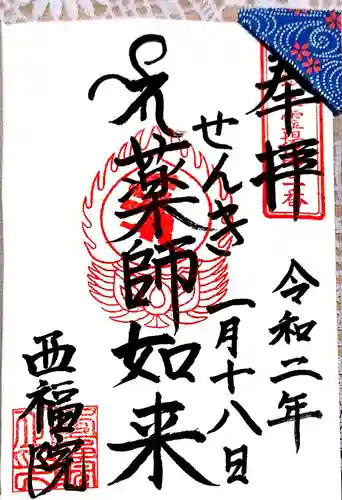 奉拝
令和二年
せんき
一月十八日
薬師如来
西福院